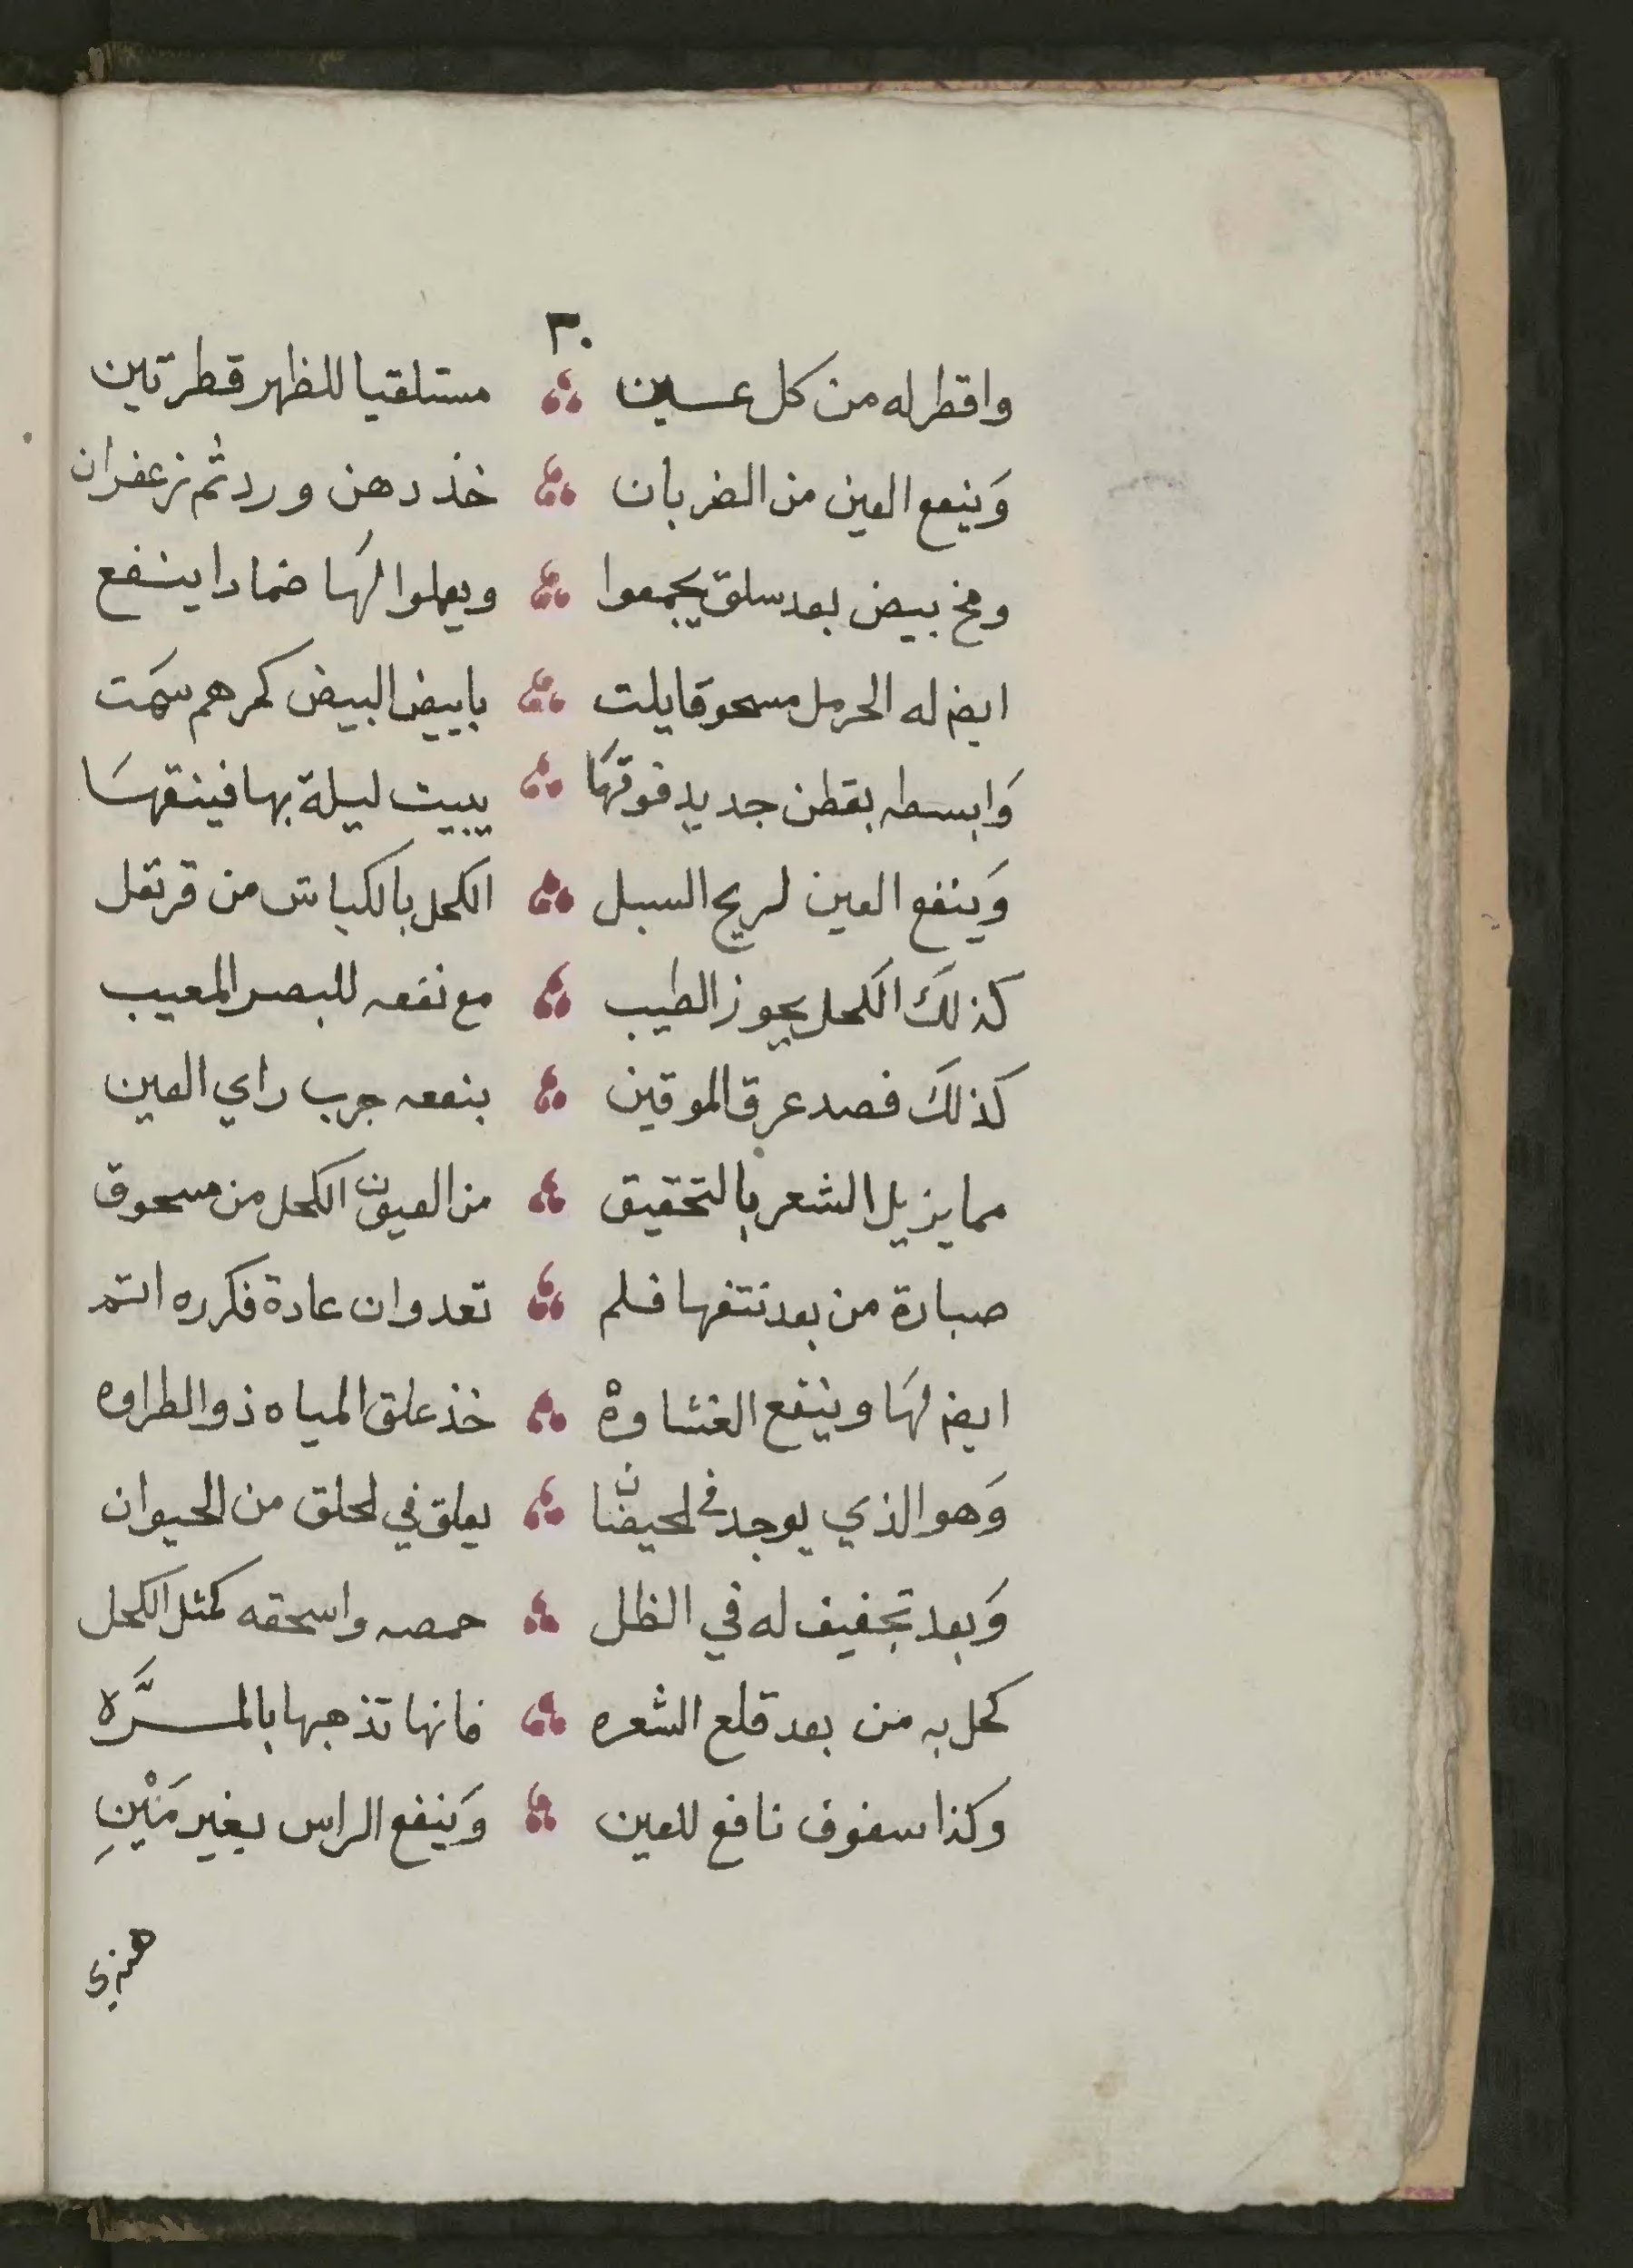 ٣٠
واقطر له من كل عين مستلقيا للظهر قطرتين
وَينفع العين من الضربان خذ دهن ورد ثم زعفران
ومخ بيض بعد سلق يجمعوا ويعملوا لهَا ضمادا ينفع
ايضم له الحرمل مسحوقا يلت بابيض البيض كمرهم سَمت
وَابسطه بقطن جديد فوقهَا يبيت ليلة بها فينقهَا
وَينفع العين لريح السبل الكحل بالكباش من قرنفل
كذلكَ الكحل بجوز الطيب مع نفعه للبصر المعيب
كذلكَ فصد عرق الموقين بنفعه جرب راي العين
مما يزيل الشعر بالتحقيق من العيون الكحل من مسحوق
صبارة من بعد نتفها فلم تعد وان عادة فكرره اتتم
ايضم لهَا وينفع الغشاوهْ خذ علق المياه ذو الطراوه
وَهو الذي يوجد في لحيضان يعلق في لحلق من الحيوان
وَبعد تجفيف له في الظل حمصه واسحقه كمثل الكحل
كحل به من بعد قلع الشعره فانها تذهبها بالمسرَّه
وكذا سفوف نافع للعين وَينفع الراس بغير مَيْنِ
هندي